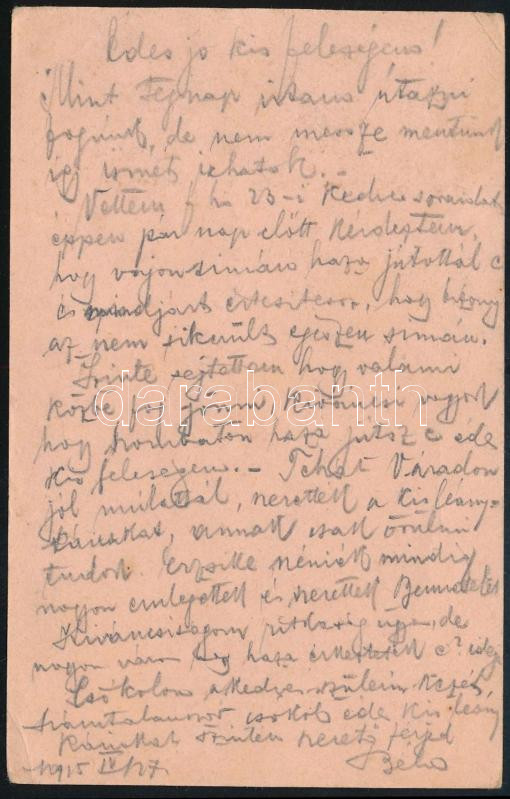 Édes jó kis feleségem!
Mint tegnap irtam útazni
fogunk, de nem messze mentünk
így ismét irhatok. –
Vettem f. hó 23-i kedves soraidat
éppen pár nap előtt kérdeztem,
hogy vajon simán haza jutottál e
és mindjárt értesitesz, hogy bizony
az nem sikerült egészen simán.
Szinte sejtettem hogy valami
közbe fog jönni, kiváncsi vagyok
hogy szombaton haza jutsz e édes
kis feleségem. – Tehát Váradon
jól mulattál, szerették a kis leány-
kánkat, annak csak örülni
tudok. Erzsike néniék mindig
nagyon emlegettek és szerettek Bennetek
Kiváncsiságom
nagyon várom hogy haza érkeztetek e?
Csókolom a kedves szüleim kezét
számtalanszor csókol édes kis leány
kánkat szintén szerető férjed
1915 IV/27. Béla
darabanth